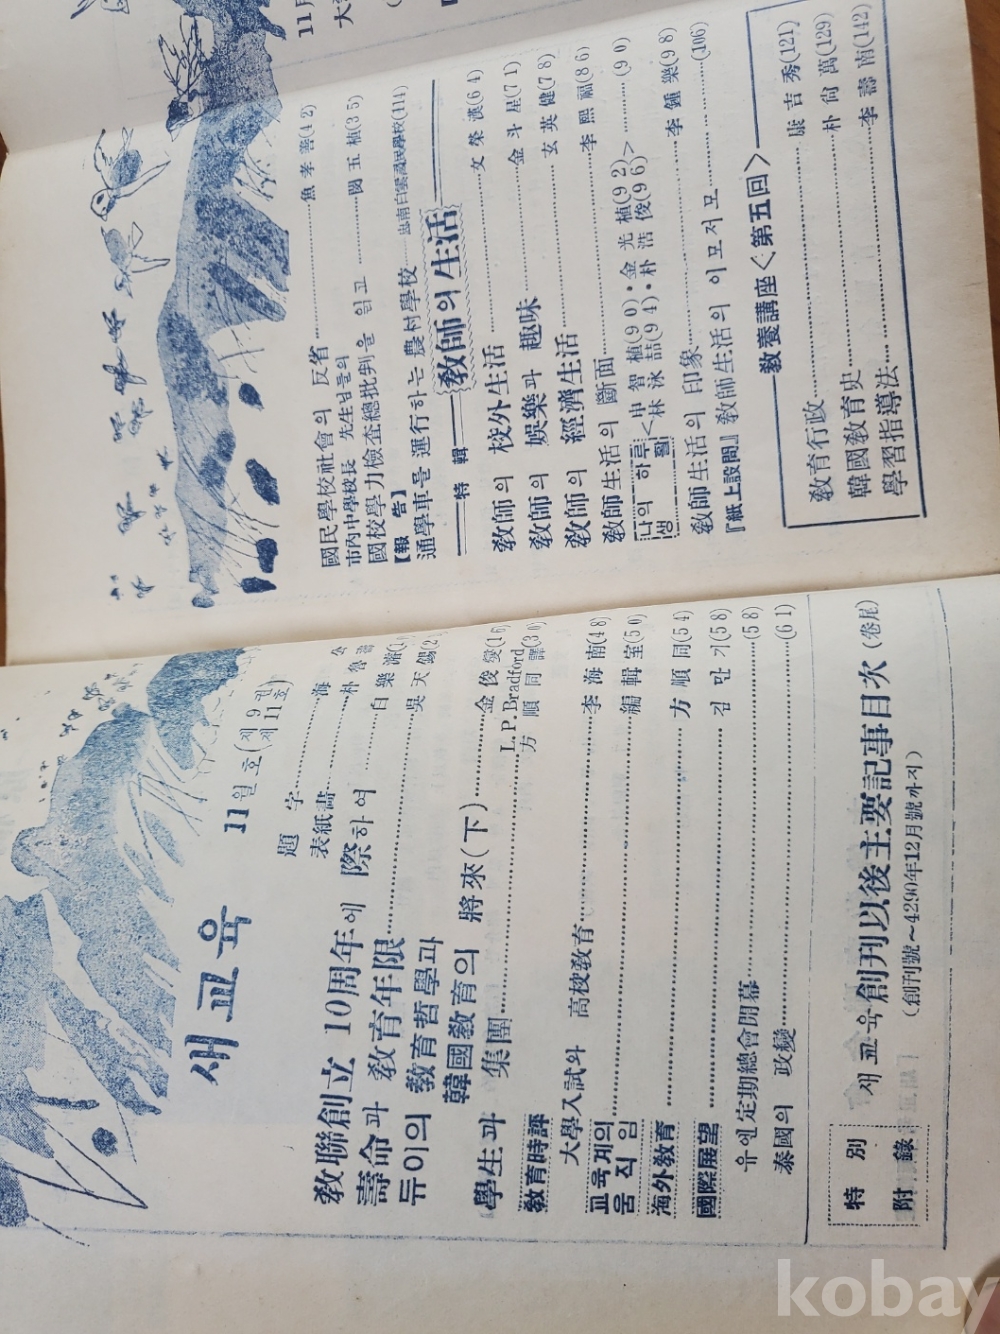 새교육 11월호 (제9권 제11호)
題字………海公
表紙畵………朴魯壽
教聯創立 10周年에 際하여………白樂濬
壽命과 教育年限………吳天錫
듀이의 教育哲學과
韓國教育의 將來(下)………金俊燮(16)
學生과 集團………L.P.Bradford
方順同譯(30)
教育時評
大學入試와 高校敎育………李海南(48)
교육계의 움직임………編輯室(50)
海外敎育………方順同(54)
國際展望………김만기(58)
유엔定期總會開幕………(58)
泰國의 政變………(61)
特別附錄
새교육創刊以後主要記事目次(卷尾)
(創刊號~4290年12月號까지)
11月
國民學校社會의 反省………魚孝善(42)
市內中學校長 先生님들의
國校學力檢査總批判을 읽고………閔玉植(35)
【報告】
通學車를 運行하는 農村學校
特輯
敎師의 生活
敎師의 校外生活………文榮漢(64)
敎師의 娛樂과 趣味………金斗星(71)
敎師의 經濟生活………玄英健(78)
敎師生活의 斷面………李熙福(86)
나의 하루 <………(90)
申智植(90)・金光植(92)
林泳喆(94)・朴浩俊(96)>
敎師生活의 印象………李鍾樂(98)
『紙上設問』敎師生活의 이모저모………(106)
敎養講座<第五回>
敎育行政………康吉秀(121)
韓國敎育史………朴尙萬(129)
學習指導法………李壽南(142)
kobay